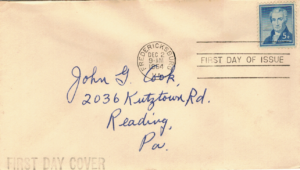 FREDERICKSBURG
DEC 2
9-AM
1954
5¢
FIRST DAY OF ISSUE
John G. Cook,
2036 Kutztown Rd.
Reading,
Pa.
FIRST DAY COVER